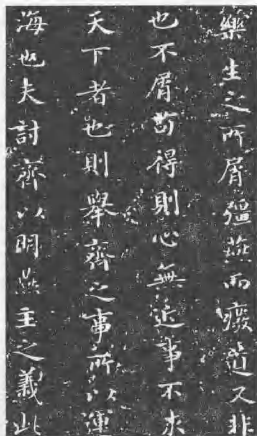 樂生之所屑彊燕而癈道又非
也不屑苟得則心無近事不求
天下者也則舉齊之事所以運
海也夫討齊以明燕主之義此